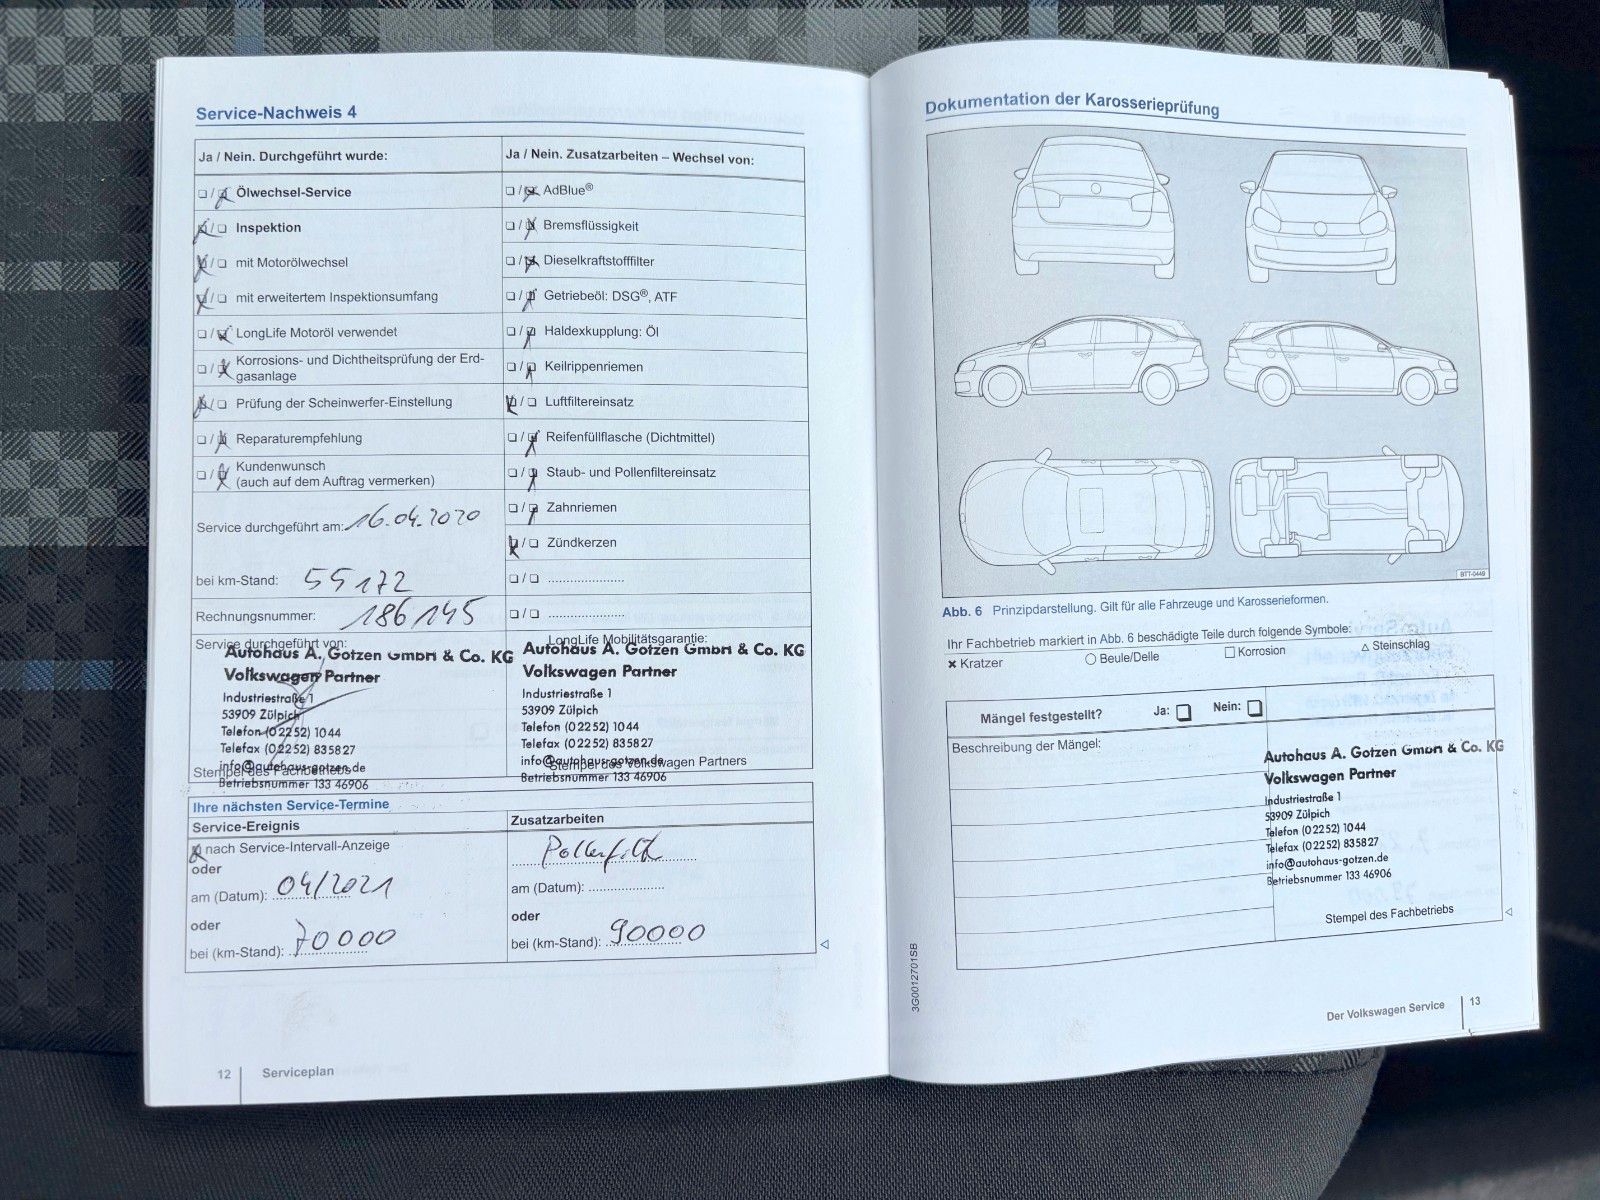 Service-Nachweis 4
Ja / Nein. Durchgeführt wurde:
Ölwechsel-Service
Inspektion
mit Motorölwechsel
mit erweitertem Inspektionsumfang
LongLife Motoröl verwendet
Korrosions- und Dichtheitsprüfung der Erd-
gasanlage
Prüfung der Scheinwerfer-Einstellung
Reparaturempfehlung
Kundenwunsch
(auch auf dem Auftrag vermerken)
Service durchgeführt am: 16.04.2020
bei km-Stand: 55172
Rechnungsnummer: 186145
Service durchgeführt von:
Autohaus A. Gotzen GmbH & Co. KG
Volkswagen Partner
Industriestraße 1
53909 Zülpich
Telefon (02252) 1044
Telefax (02252) 835827
info@autohaus-gotzen.de
Stempel des Fachbetriebs
Betriebsnummer 133 46906
Ja / Nein. Zusatzarbeiten – Wechsel von:
AdBlue®
Bremsflüssigkeit
Dieselkraftstofffilter
Getriebeöl: DSG®, ATF
Haldexkupplung: Öl
Keilrippenriemen
Luftfiltereinsatz
Reifenfüllflasche (Dichtmittel)
Staub- und Pollenfiltereinsatz
Zahnriemen
Zündkerzen
LongLife Mobilitätsgarantie:
Autohaus A. Gotzen GmbH & Co. KG
Volkswagen Partner
Industriestraße 1
53909 Zülpich
Telefon (02252) 1044
Telefax (02252) 835827
info@autohaus-gotzen.de
Stempel des Volkswagen Partners
Betriebsnummer 133 46906
Ihre nächsten Service-Termine
Service-Ereignis
nach Service-Intervall-Anzeige
oder
am (Datum): 04/2021
oder
bei (km-Stand): 70000
Zusatzarbeiten
am (Datum):
oder
bei (km-Stand): 90000
12 Serviceplan
Dokumentation der Karosserieprüfung
BTT-0449
Abb. 6 Prinzipdarstellung. Gilt für alle Fahrzeuge und Karosserieformen.
Ihr Fachbetrieb markiert in Abb. 6 beschädigte Teile durch folgende Symbole:
Kratzer Beule/Delle Korrosion Steinschlag
Mängel festgestellt? Ja: Nein:
Beschreibung der Mängel:
Autohaus A. Gotzen GmbH & Co. KG
Volkswagen Partner
Industriestraße 1
53909 Zülpich
Telefon (02252) 1044
Telefax (02252) 835827
info@autohaus-gotzen.de
Betriebsnummer 133 46906
Stempel des Fachbetriebs
3G0012701SB
Der Volkswagen Service 13